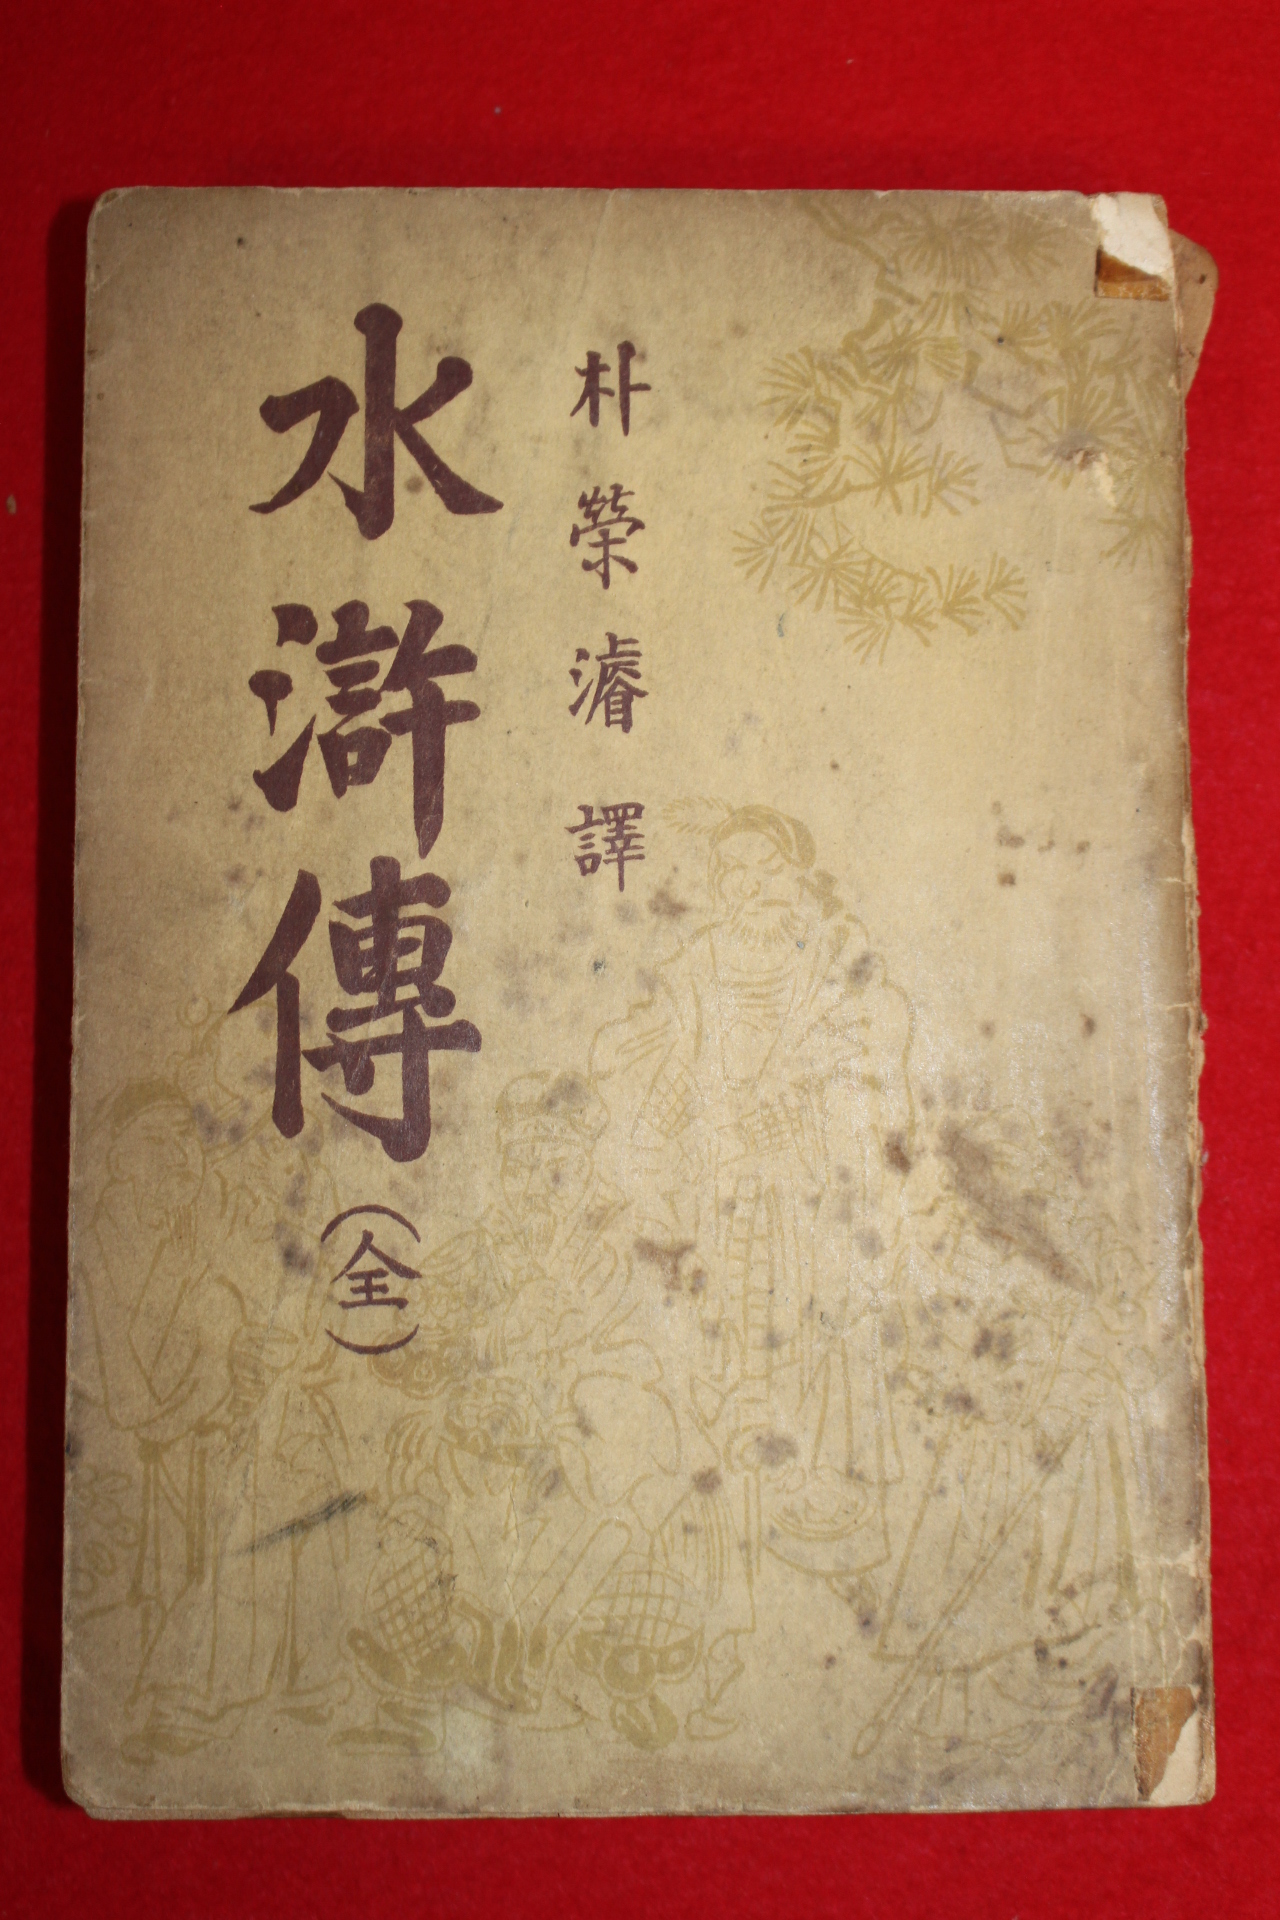 朴榮濬譯
水滸傳(全)